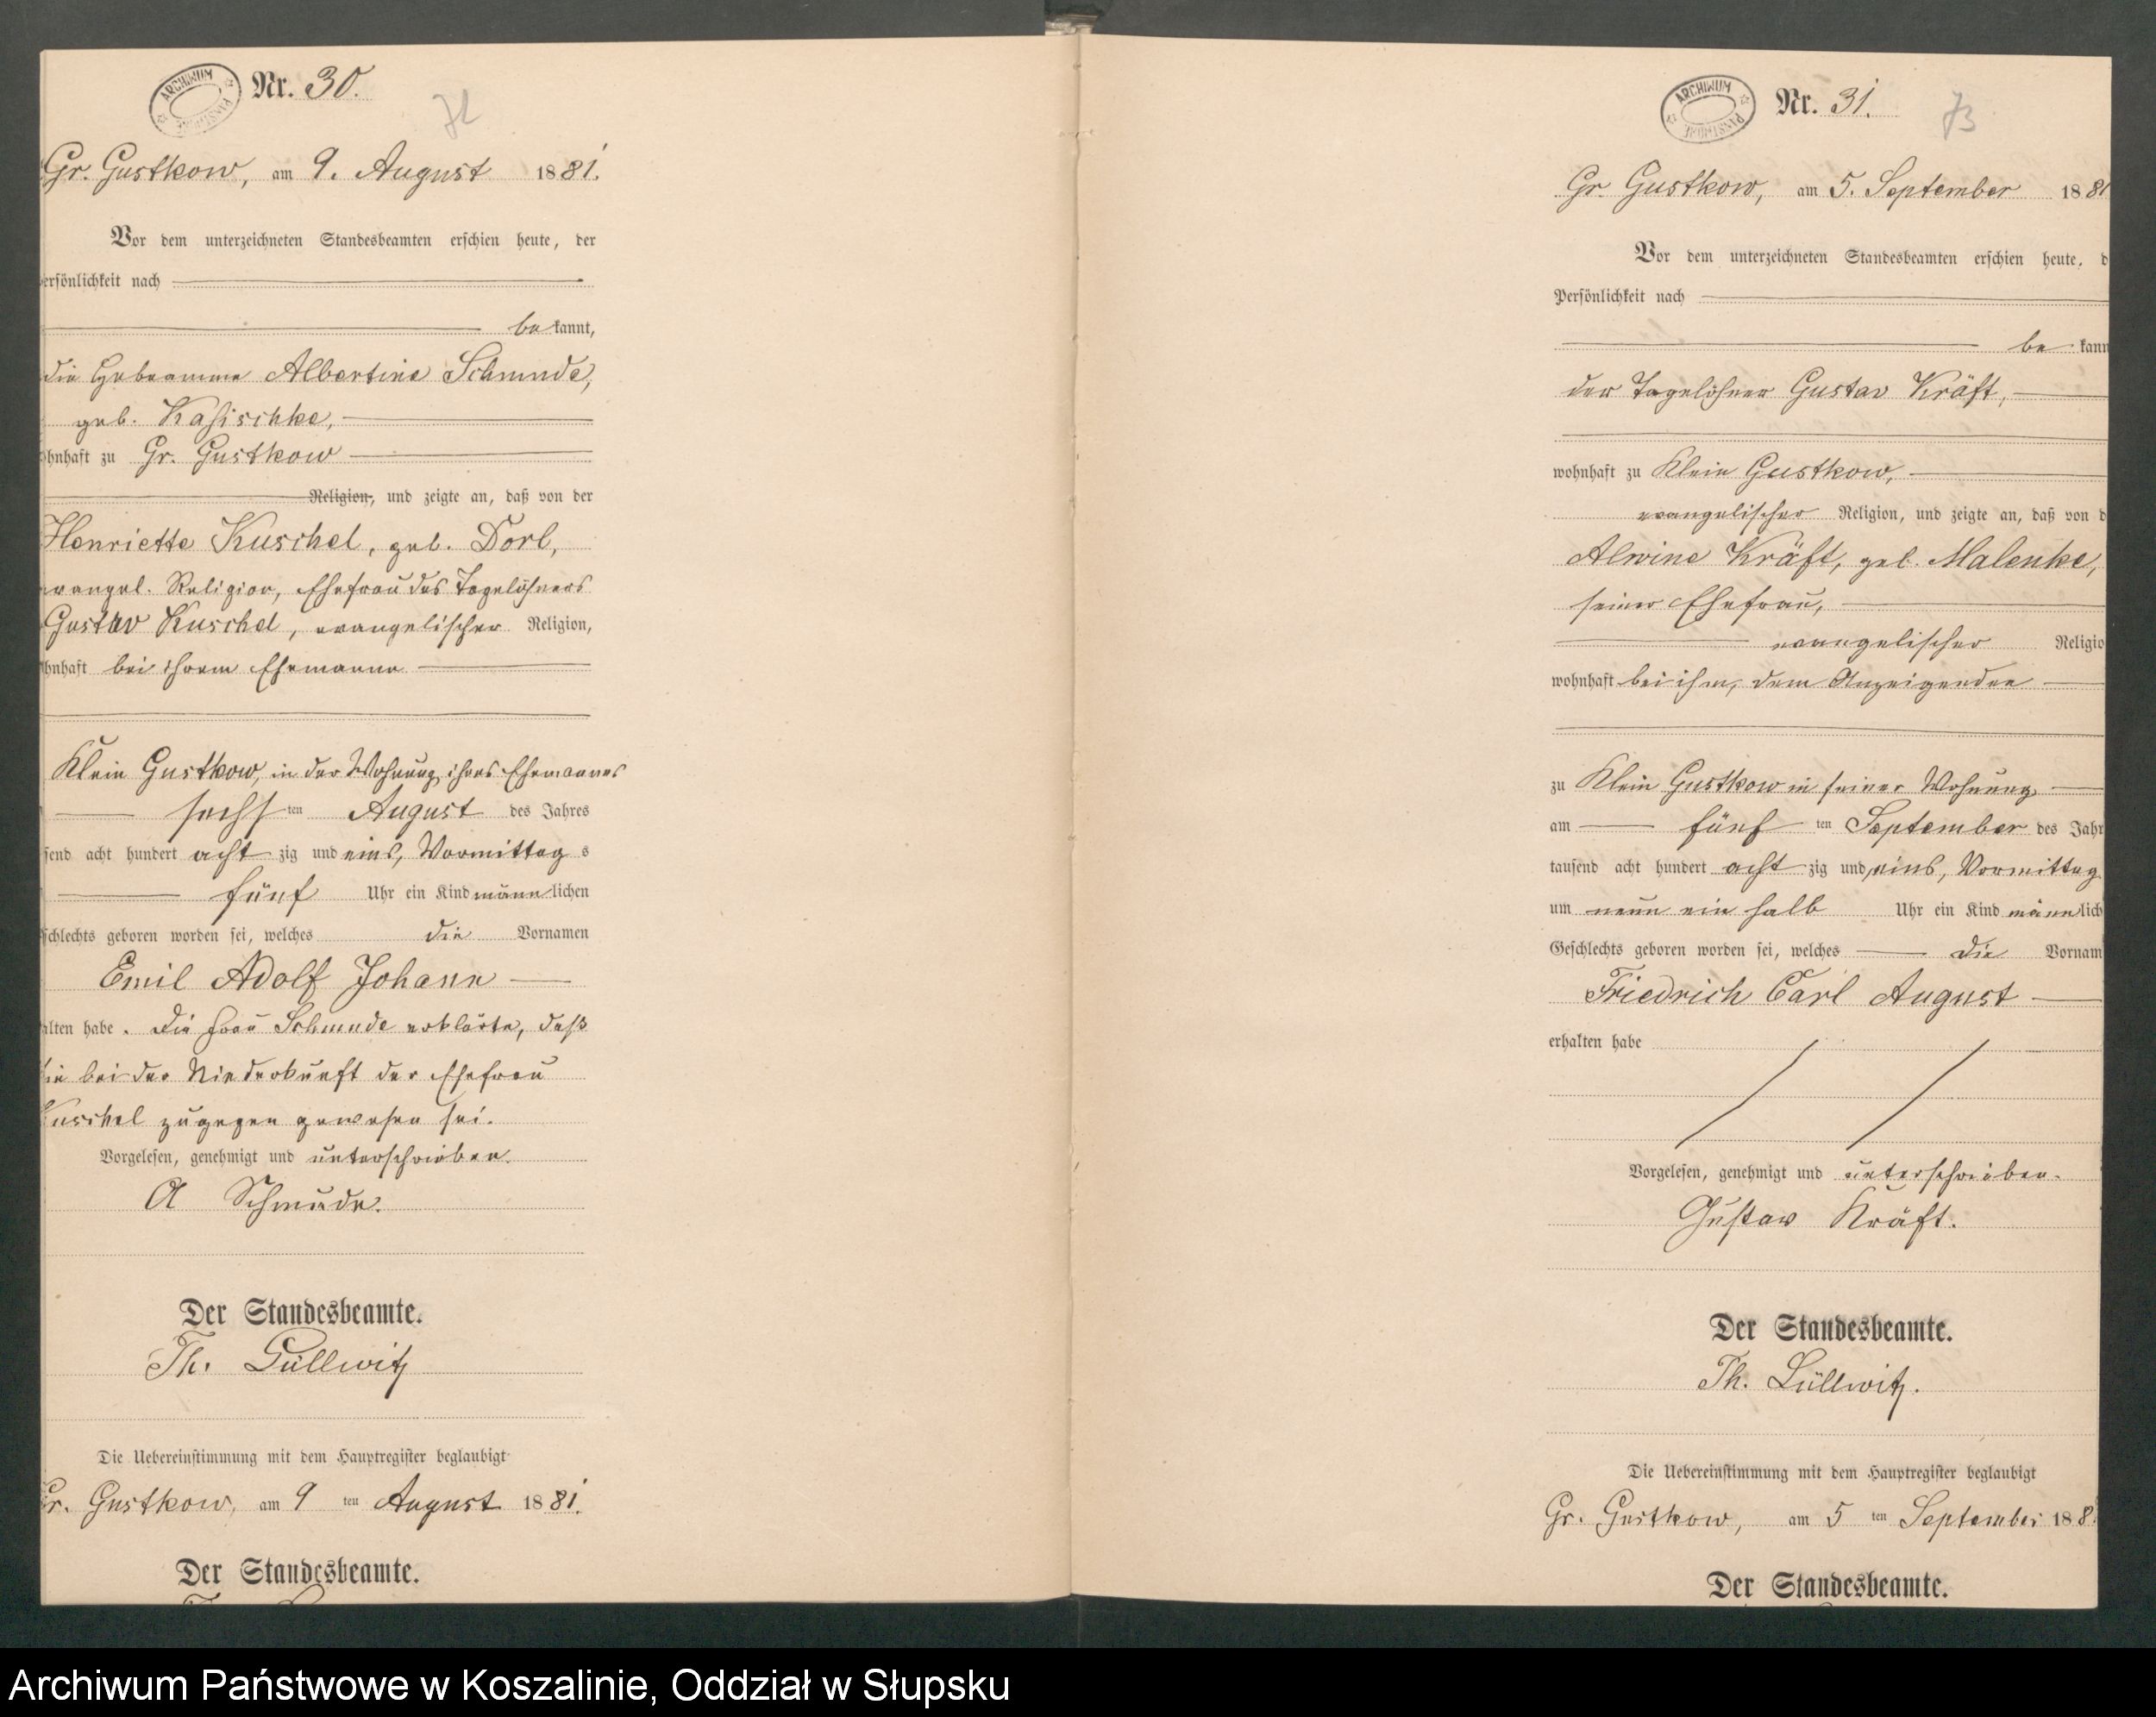 ARCHIWUM PAŃSTWOWE
Nr. 30.
72
Gr. Gustkow, am 9. August 1881.
Vor dem unterzeichneten Standesbeamten erschien heute, der
ersönlichkeit nach
be kannt,
die Hebeamme Albertine Schmude,
geb. Kasischke,
ohnhaft zu Gr. Gustkow
Religion, und zeigte an, daß von der
Henriette Kuschel, geb. Dorl,
evangel. Religion, Ehefrau des Tagelöhners
Gustav Kuschel, evangelischer Religion,
ohnhaft bei ihrem Ehemanne
Klein Gustkow, in der Wohnung ihres Ehemannes
sechsten August des Jahres
send acht hundert achtzig und eins, Vormittags
fünf Uhr ein Kind männlichen
schlechts geboren worden sei, welches die Vornamen
Emil Adolf Johann
alten habe. Die Frau Schmude erklärte, daß
sie bei der Niederkunft der Ehefrau
Kuschel zugegen gewesen sei.
Vorgelesen, genehmigt und unterschrieben.
A Schmude.
Der Standesbeamte.
Th. Lüllwitz
Die Uebereinstimmung mit dem Hauptregister beglaubigt
Gr. Gustkow, am 9 ten August 1881.
Der Standesbeamte.
ARCHIWUM PAŃSTWOWE
Nr. 31.
73
Gr. Gustkow, am 5. September 1881
Vor dem unterzeichneten Standesbeamten erschien heute, d
Persönlichkeit nach
be kann
der Tagelöhner Gustav Kräft,
wohnhaft zu Klein Gustkow,
evangelischer Religion, und zeigte an, daß von d
Alwine Kräft, geb. Malenke,
seiner Ehefrau,
evangelischer Religio
wohnhaft bei ihm, dem Anzeigenden
zu Klein Gustkow in seiner Wohnung
am fünf ten September des Jahr
tausend acht hundert achtzig und eins, Vormittag
um neun ein halb Uhr ein Kind männlich
Geschlechts geboren worden sei, welches die Vornam
Friedrich Carl August
erhalten habe
Vorgelesen, genehmigt und unterschrieben.
Gustav Kräft.
Der Standesbeamte.
Th. Lüllwitz.
Die Uebereinstimmung mit dem Hauptregister beglaubigt
Gr. Gustkow, am 5 ten September 188
Der Standesbeamte.
Archiwum Państwowe w Koszalinie, Oddział w Słupsku